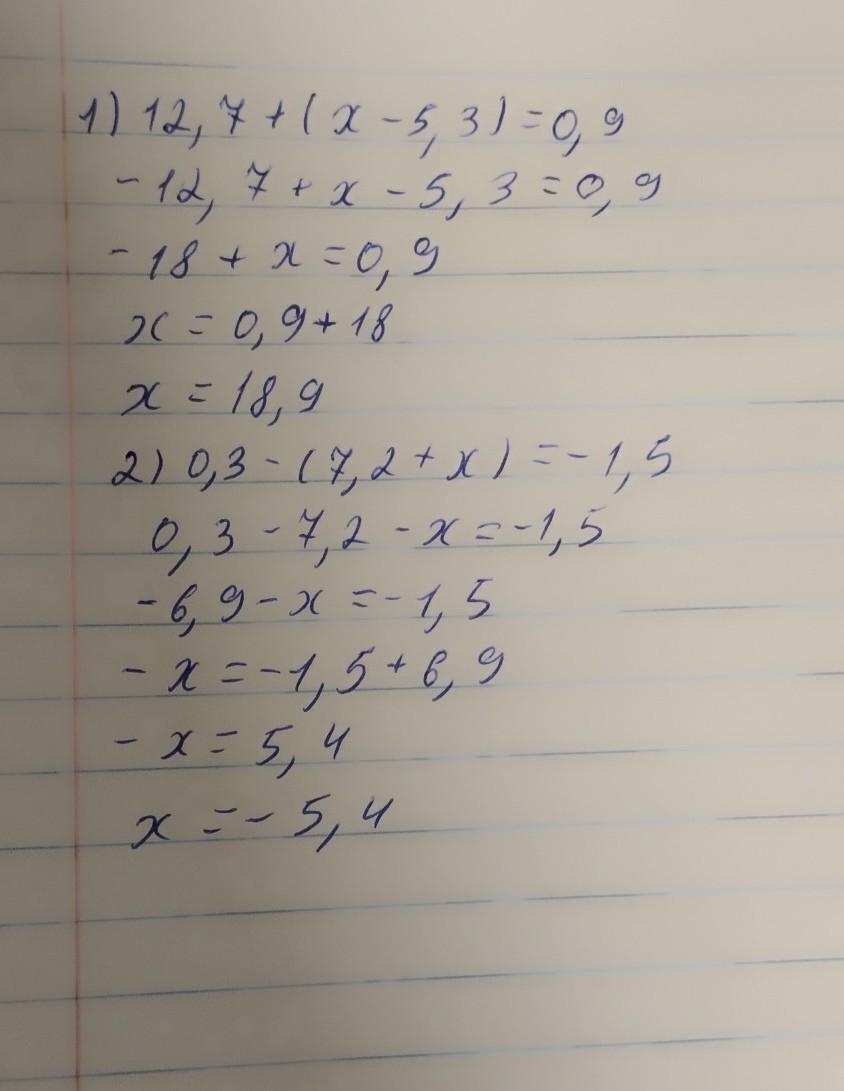 1) 12,7+(x-5,3)=0,9
-12,7+x-5,3=0,9
-18+x=0,9
x=0,9+18
x=18,9
2) 0,3-(7,2+x)=-1,5
0,3-7,2-x=-1,5
-6,9-x=-1,5
-x=-1,5+6,9
-x=5,4
x=-5,4